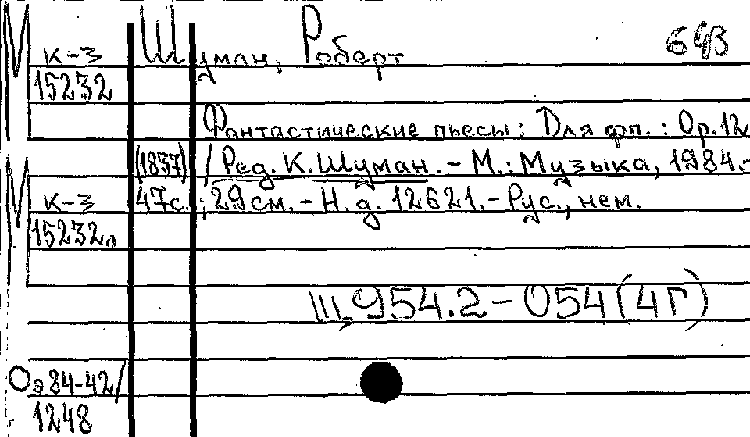 М к-3 Шуман, Роберт 643
15232
Фантастические пьесы : Для фп. : Ор.12
(1837) / Ред. К. Шуман. - М. : Музыка, 1984.-
М к-3 47с. ; 29см. - Н. д. 12621. - Рус., нем.
15232а
Щ954.2-054(4Г)
Оэ84-42/
1248